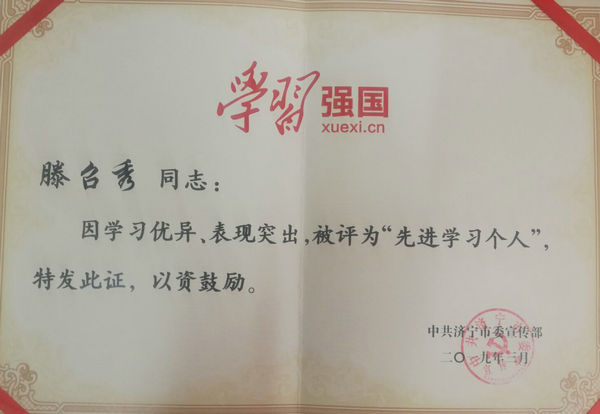 學習强国
xuexi.cn
滕召秀 同志：
因学习优异、表现突出，被评为“先进学习个人”，
特发此证，以资鼓励。
中共济宁市委宣传部
二〇一九年三月